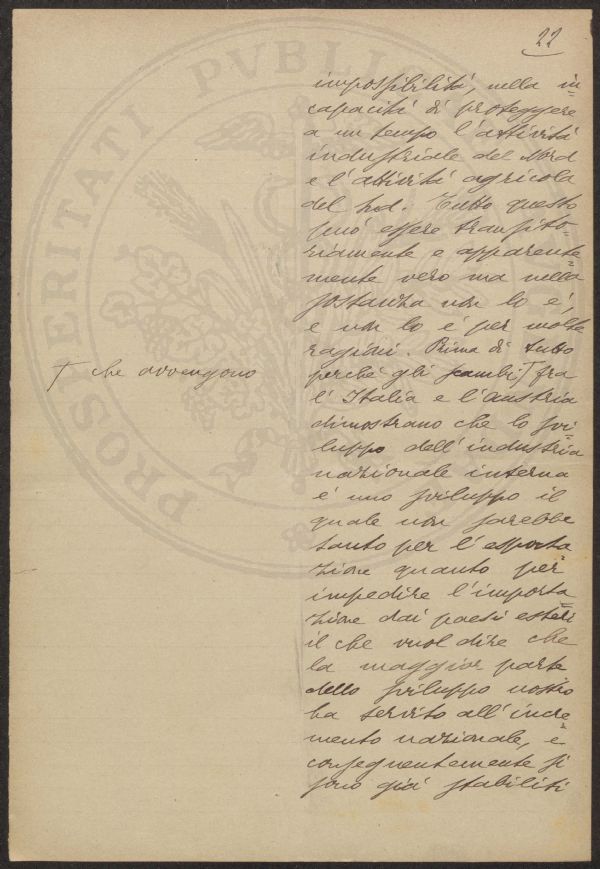 22
impossibilitá, nella in=
capacitá di proteggere
a un tempo l'attivitá
industriale del Nord
e l'attivitá agricola
del Sud. Tutto questo
puó essere transito=
riamente e apparente=
mente vero ma nella
sostanza non lo é,
e non lo é per molte
ragioni. Prima di tutto
perché gli scambi T fra
T che avvengono
l'Italia e l'Austria
dimostrano che lo svi=
luppo dell'industria
nazionale interna
é uno sviluppo il
quale non sarebbe
tanto per l'esporta
zione quanto per
impedire l'importa
zione dai paesi esteri
il che vuol dire che
la maggior parte
dello sviluppo nostro
ha servito all'incre=
mento nazionale, e
conseguentemente si
sono giá stabiliti
PROSPERITATI PVBLIC